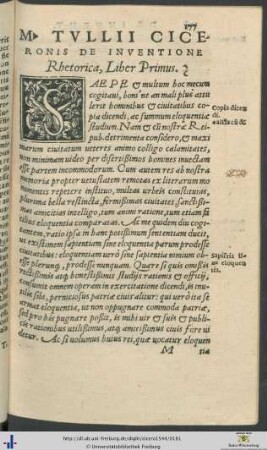 M. TVLLII CICE-
RONIS DE INVENTIONE
Rhetorica, Liber Primus.
SAEPE & multum hoc mecum
cogitaui, boni'ne an mali plus attu
lerit hominibus & ciuitatibus co-
pia dicendi, ac summum eloquentiæ
studium. Nam & cùm nostræ Rei-
pub. detrimenta considero, & maxi
marum ciuitatum veteres animo colligo calamitates,
non minimam video per disertissimos homines inuectam
esse partem incommodorum. Cum autem res ab nostra
memoria propter vetustatem remotas ex literarum mo
numentis repetere instituo, multas vrbeis constitutas,
plurima bella restincta, firmissimas societates, sanctissi-
mas amicitias intelligo, tum animi ratione, tum etiam fa
cilius eloquentia comparatas. Ac me quidem diu cogi-
tantem, ratio ipsa in hanc potissimum sententiam ducit,
ut existimem sapientiam sine eloquentia parum prodesse
ciuitatibus: eloquentiam verò sine sapientia nimium ob-
esse plerunque, prodesse nunquam. Quare si quis omissis
rectissimis atque honestissimis studijs rationis & officij,
consumit omnem operam in exercitatione dicendi, is inu-
tilis sibi, perniciosus patriæ ciuis alitur: qui verò ita se
armat eloquentia, ut non oppugnare commoda patriæ,
sed pro his pugnare possit, is mihi vir & suis & publi-
cis rationibus vtilissimus, atque amicissimus ciuis fore vi
detur. Ac si volumus huius rei, quæ vocatur eloquen
M
Copia dicen
di.
Sapiētis si-
ne eloquen
tia.
http://dl.ub.uni-freiburg.de/diglit/cicero1544/0181
© Universitätsbibliothek Freiburg